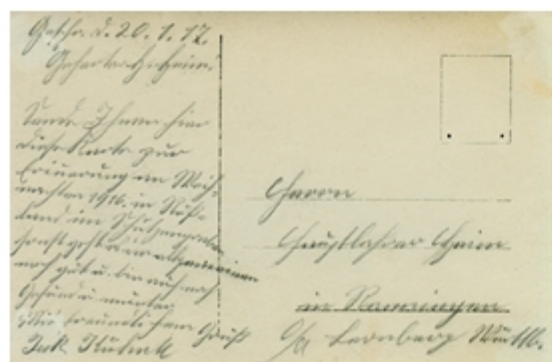 Geschr. d. 20.1.17.
Sende Ihnen hier
diese Karte zur
Erinnerung an Weih-
nachten 1916. in Ruß-
land im Schützengraben
noch gut u. bin auch noch
gesund u. munter
Mit freundlichem Gruß
Herrn
Hauptlehrer Heim
in Renningen
O/A Leonberg Württb.